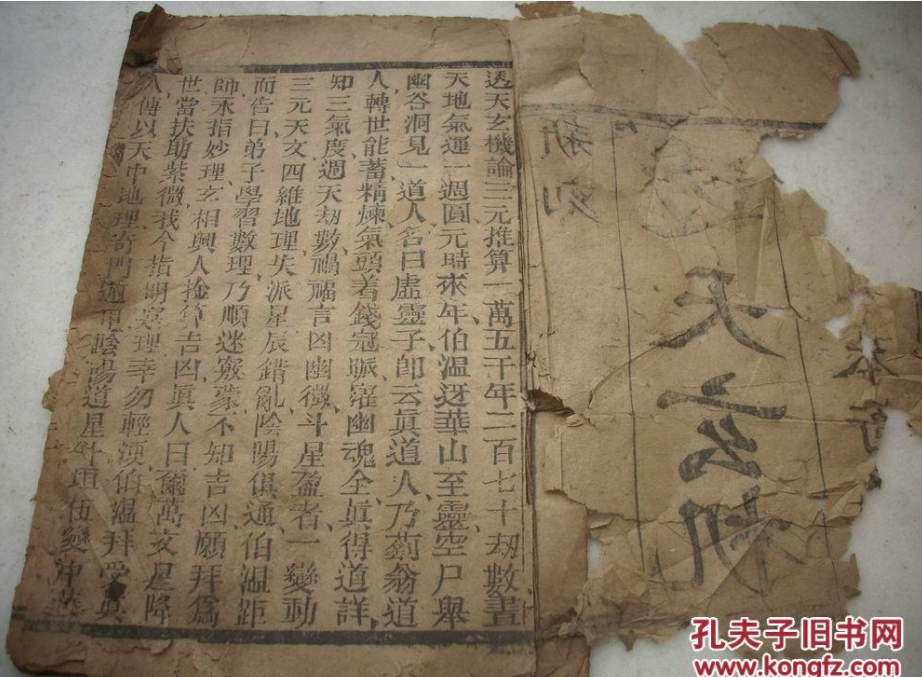 透天玄機論三元推算一萬五千年二百七十劫數晝
天地氣運一週圓元時來年伯温迓華山至靈空尸舉
幽谷洞見一道人名曰虛靈子即云眞道人乃薊翁道
人轉世能蓄精煉氣頭着錢冠脈窪幽魂全眞得道詳
知三氣度週天劫數禍福言凶幽微斗星盈者一變動
三元天文四維地理失派星辰錯亂陰陽俱通伯温距
而告曰弟子學習數理乃順迷竅蒙不知吉凶願拜爲
師永指妙理玄相興人推算吉凶眞人曰爾萬文星降
世當扶助紫微我今指明冥理幸勿輕漢伯温拜受眞
人傳以天中地理奇門遁甲陰陽道星
新刻
天玄机
本
孔夫子旧书网
www.kongfz.com